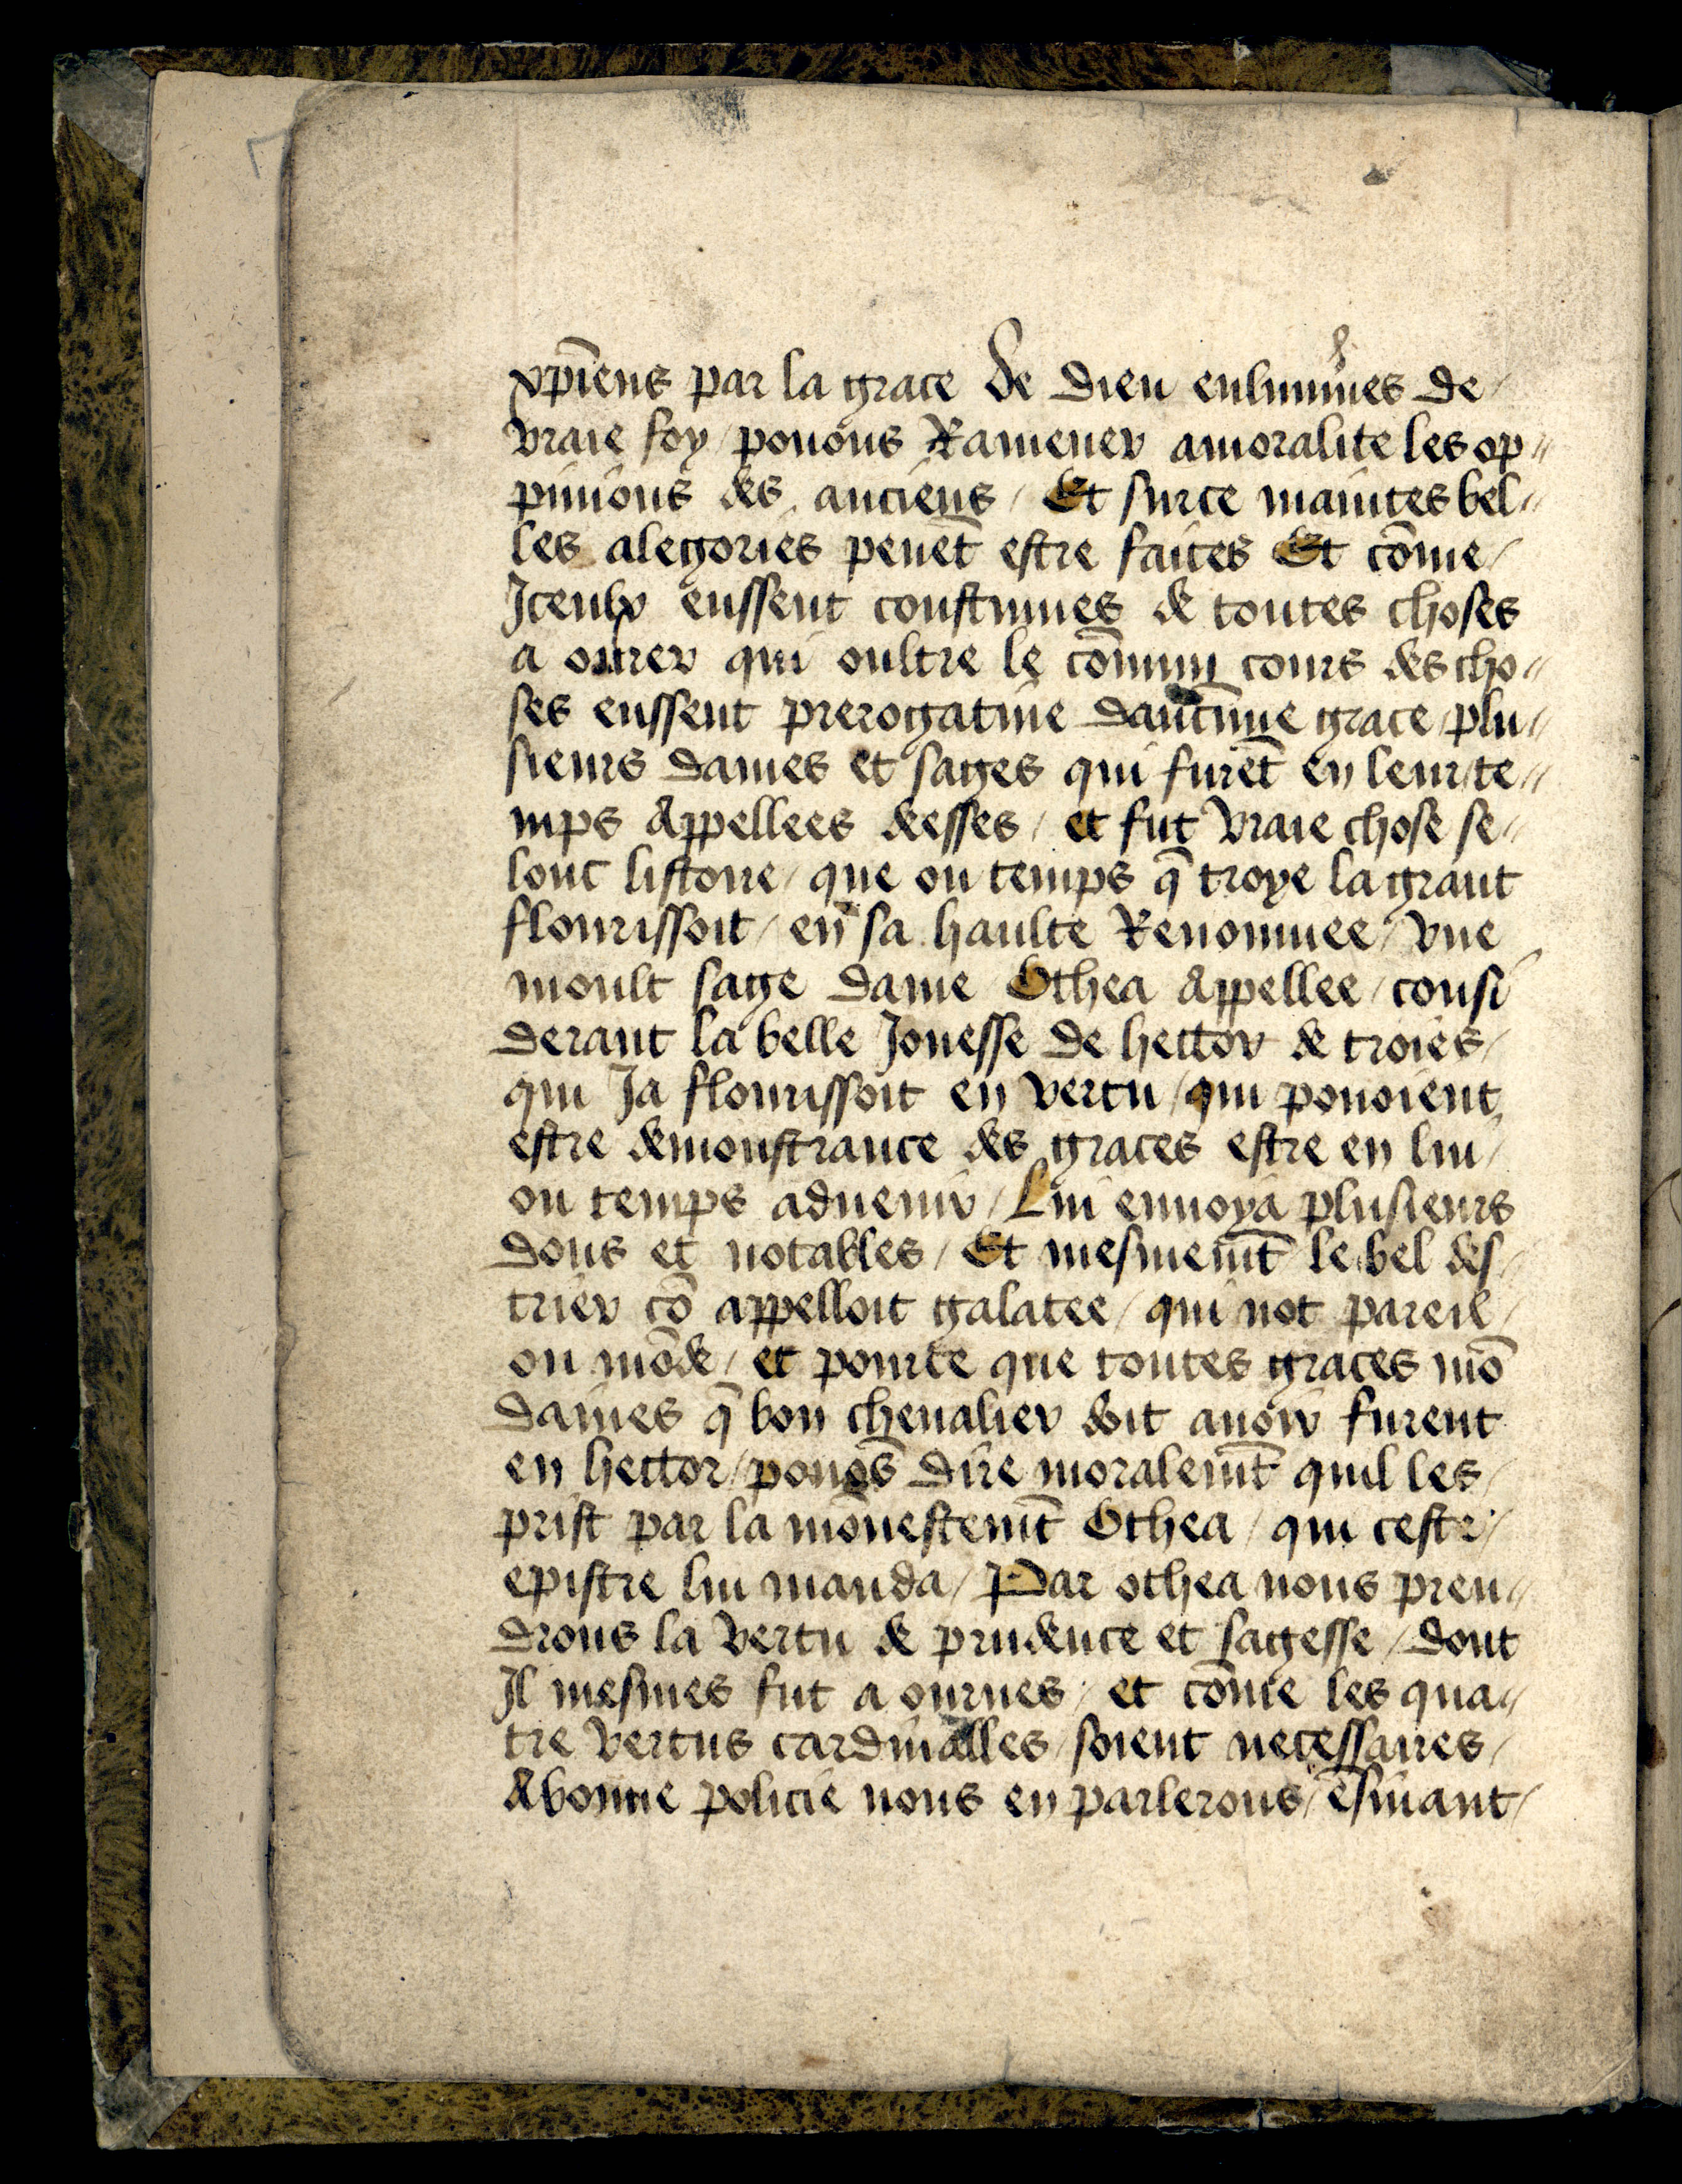 xp̄iens par la grace de dieu enlumines de /
vraie foy / pouons Ramener amoralite les op //
pinions des anciens / Et surce maintes bel //
les alegories peuēt estre faites Et cōme /
Iceulx eussent coustumes de toutes choses
a ourer qui oultre le cōmun cours des cho //
ses eussent prerogatiue daucune grace / plu //
sieurs dames et sages qui furēt en leur te //
mps Appellees deesses / et fut vraie chose se //
lonc listoire / que ou temps q̄ troye la grant
flourissoit / en sa haulte Renommee / vne
moult sage dame Othea Appellee / consi
derant la belle Jouesse de hector de troies /
qui Ja flourissoit en vertu / qui pouoient
estre demonstrance des graces estre en lui /
ou temps aduenir / Lui enuoya plusieurs
dons et notables / Et mesmemt̄ le bel des /
trier cō appelloit galatee / qui not pareil /
ou mōde / et pource que toutes graces mō
daines q̄ bon cheualier doit auoir furent
en hector / pouōs dire moralemt̄ quil les /
prist par la mōnestemt̄ Othea / qui ceste /
epistre lui manda / Par othea nous pren //
drons la vertu de prudence et sagesse / dont
Il mesmes fut a ournes / et cōme les qua //
tre vertus cardinalles / soient necessaires /
A bonne policie nous en parlerons / ēsuiant /